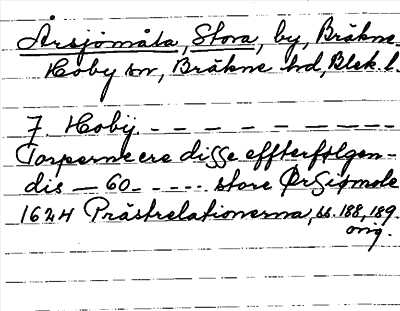 Årsjömåla, Stora, by, Bräkne-
Hoby sn, Bräkne hd, Blek. l.
J. Hobÿ - - - - - - - - -
Torperne ere disse effterfølgen-
dis — 60 - - - - - store ØrSiømole
1624 Prästrelationerna, ss. 188, 189.
orig.